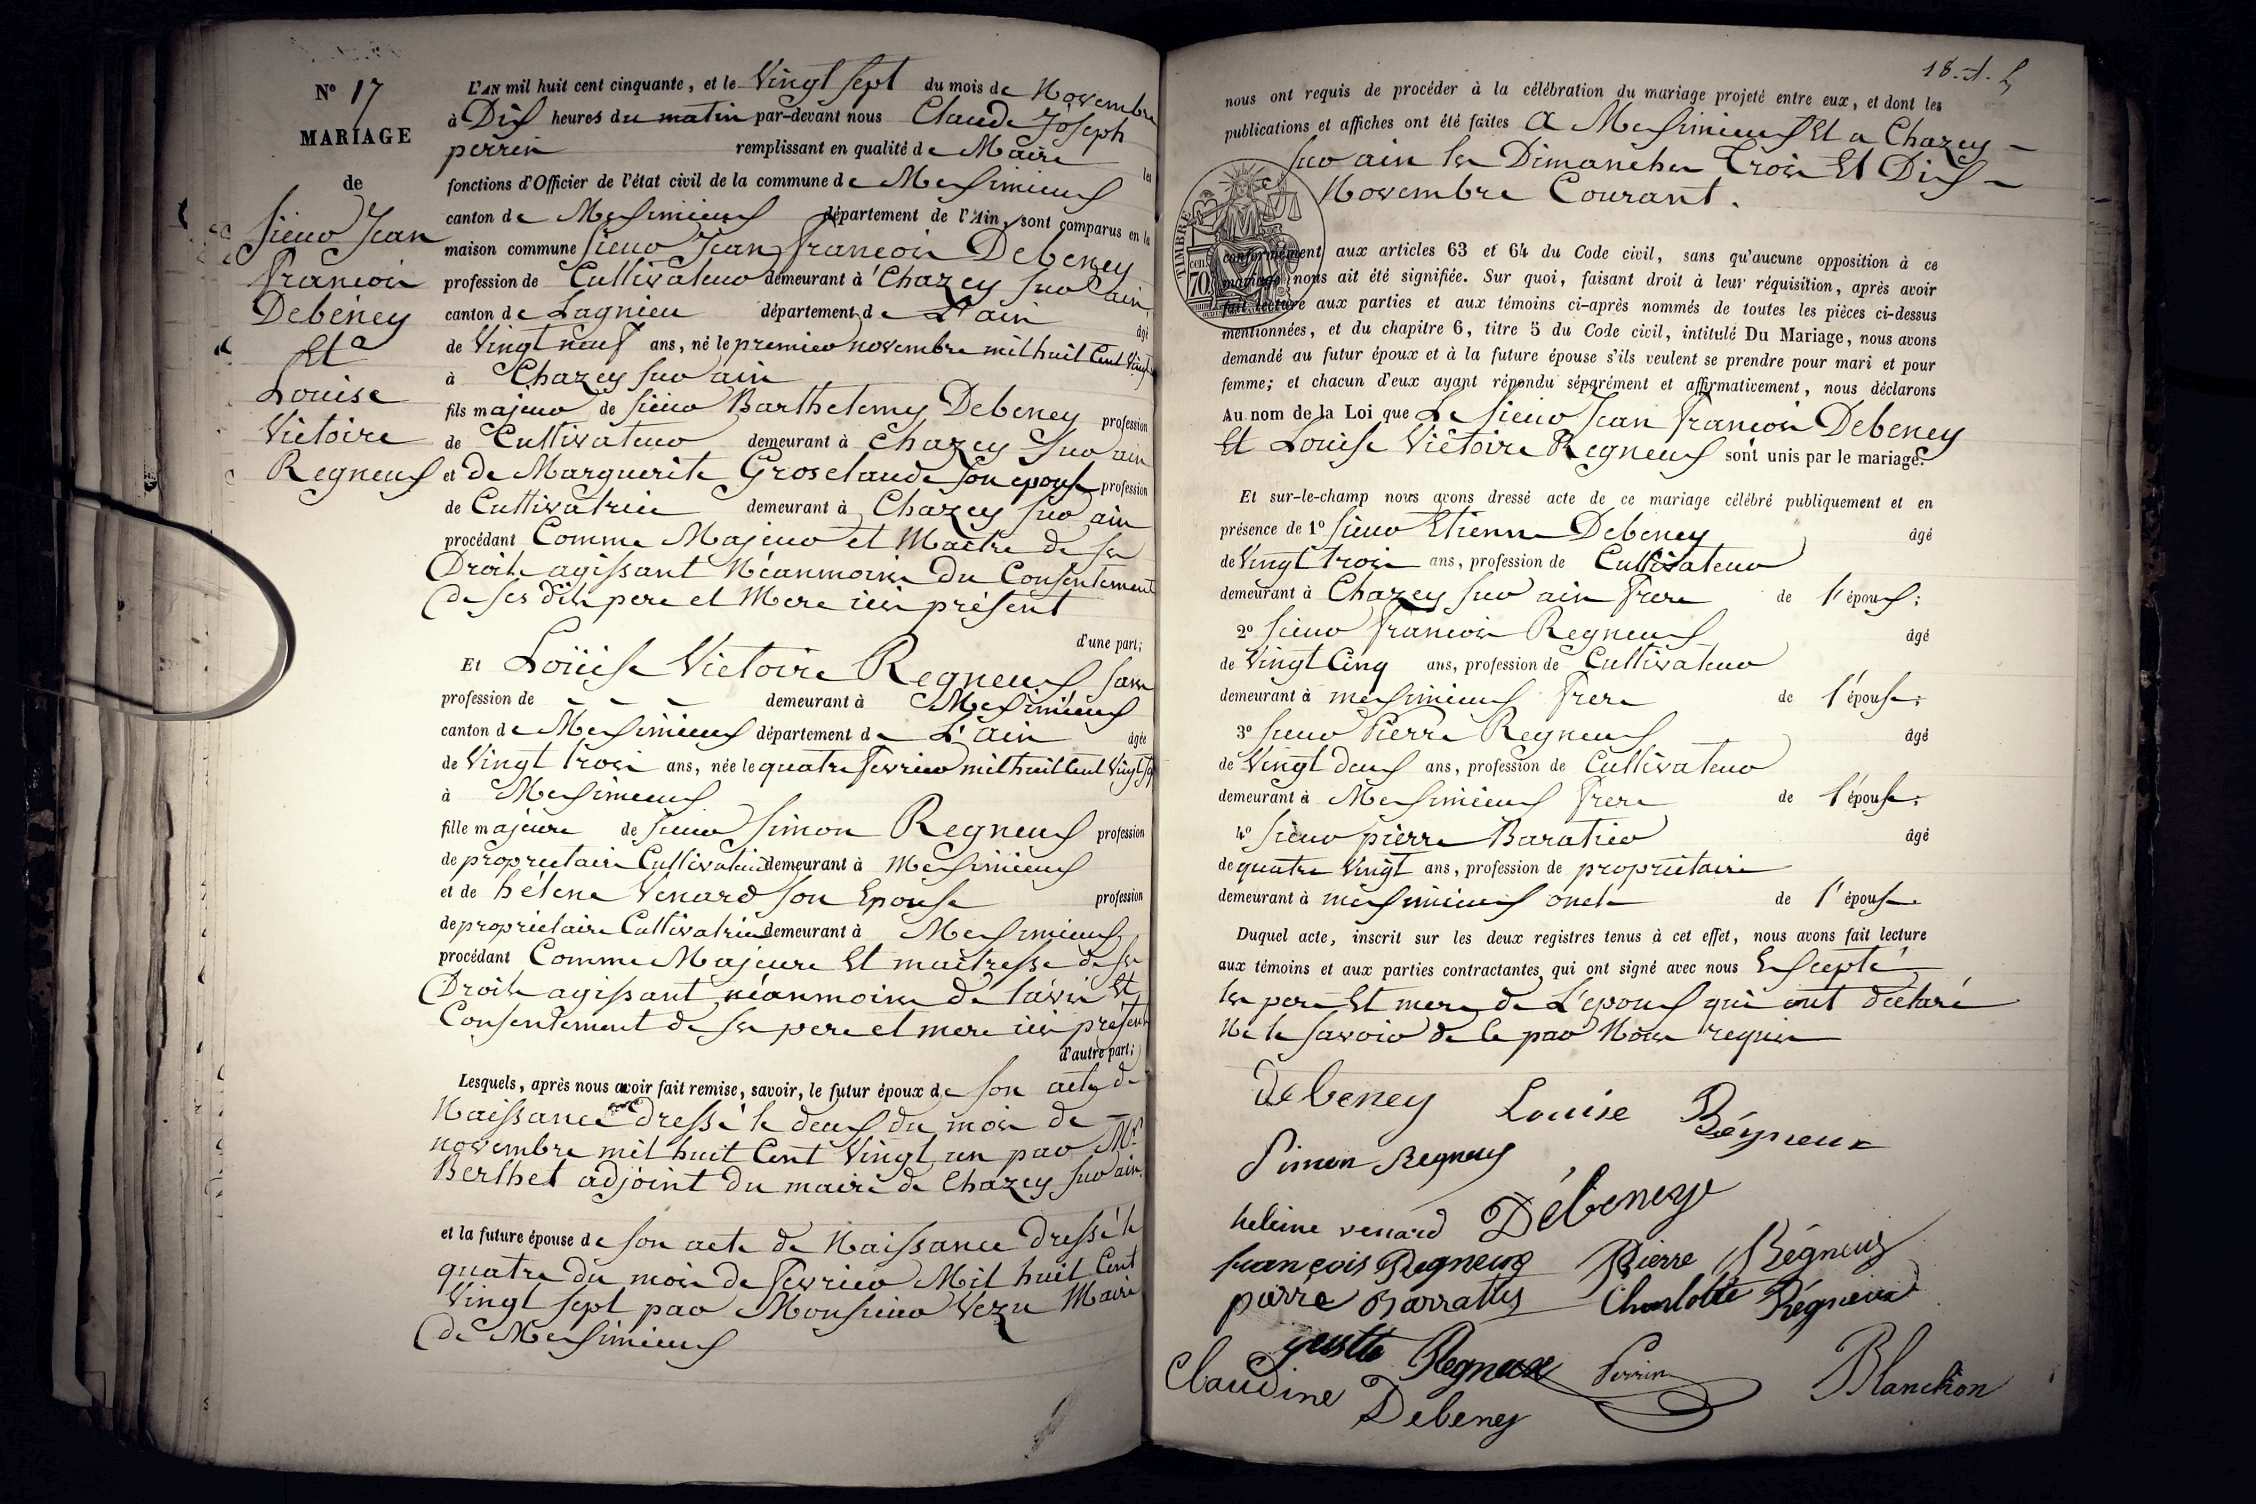 N° 17
MARIAGE
de
Sieur Jean
françois
Debeney
Et
Louise
Victoire
Regneux
L'AN mil huit cent cinquante, et le Vingt sept du mois de Novembre
à Dix heures du matin par-devant nous Claude Joseph
perrin remplissant en qualité de Maire les
fonctions d'Officier de l'état civil de la commune de Meximieux
canton de Meximieux département de l'Ain, sont comparus en la
maison commune Sieur Jean françois Debeney
profession de Cultivateur demeurant à Chazey sur ain
canton de Lagnieu département de L'ain âgé
de Vingt neuf ans, né le premier novembre mil huit Cent Vingt
à Chazey sur ain
fils majeur de sieur Barthelemy Debeney profession
de Cultivateur demeurant à Chazey sur ain
et de Marguerite Groselaude son epouse profession
de Cultivatrice demeurant à Chazey sur ain
procédant Comme Majeur et Maitre de ses
Droits agissant Néanmoins du Consentement
de ses dits pere et Mere ici présent
d'une part;
Et Loüise Victoire Regneux sans
profession de demeurant à Meximieux
canton de Meximieux département de L'ain âgée
de Vingt trois ans, née le quatre fevrier mil huit Cent Vingt sept
à Meximieux
fille majeure de sieur Simon Regneux profession
de proprietaire Cultivateur demeurant à Meximieux
et de héléne Vénard son Epouse profession
de proprietaire Cultivatrice demeurant à Meximieux
procédant Comme Majeure Et maitresse de ses
Droits agissant néanmoins de l'avis Et
Consentement de ses pere et mere ici présent
d'autre part;
Lesquels, après nous avoir fait remise, savoir, le futur époux de son acte de
Naissance dressé le deux du mois de
novembre mil huit Cent Vingt un par Mr
Berthet adjoint du maire de Chazey sur ain.
et la future épouse de son acte de Naissance Dressé le
quatre du mois de fevrier Mil huit Cent
Vingt sept par Monsieur Vezu Maire
de Meximieux
nous ont requis de procéder à la célébration du mariage projeté entre eux, et dont les
publications et affiches ont été faites A Meximieux Et a Chazey
sur ain les Dimanches Trois Et Dix
Novembre Courant.
TIMBRE
cent.
70
conformément aux articles 63 et 64 du Code civil, sans qu'aucune opposition à ce
mariage nous ait été signifiée. Sur quoi, faisant droit à leur réquisition, après avoir
fait lecture aux parties et aux témoins ci-après nommés de toutes les pièces ci-dessus
mentionnées, et du chapitre 6, titre 5 du Code civil, intitulé Du Mariage, nous avons
demandé au futur époux et à la future épouse s'ils veulent se prendre pour mari et pour
femme; et chacun d'eux ayant répondu séparément et affirmativement, nous déclarons
Au nom de la Loi que Le sieur Jean françois Debeney
Et Louise Victoire Regneux sont unis par le mariage.
Et sur-le-champ nous avons dressé acte de ce mariage célébré publiquement et en
présence de 1° sieur Etienne Debeney âgé
de Vingt trois ans, profession de Cultivateur
demeurant à Chazey sur ain frere de l'époux;
2° sieur françois Regneux âgé
de Vingt Cinq ans, profession de Cultivateur
demeurant à meximieux frere de l'épouse;
3° sieur Pierre Regneux âgé
de Vingt deux ans, profession de Cultivateur
demeurant à Meximieux frere de l'épouse;
4° sieur pierre Baratier âgé
de quatre Vingt ans, profession de propriétaire
demeurant à meximieux oncle de l'épouse
Duquel acte, inscrit sur les deux registres tenus à cet effet, nous avons fait lecture
aux témoins et aux parties contractantes qui ont signé avec nous Excepté
les pere Et mere de L'epoux qui ont déclaré
Ne le savoir de ce par Nous requis
debeney Louise Régneux
Simon Regneux
heleine venard Débeney
françois Regneux Pierre Régneux
pierre Charlotte Régneux
Regneux Perrin Blanchon
Claudine Debeney